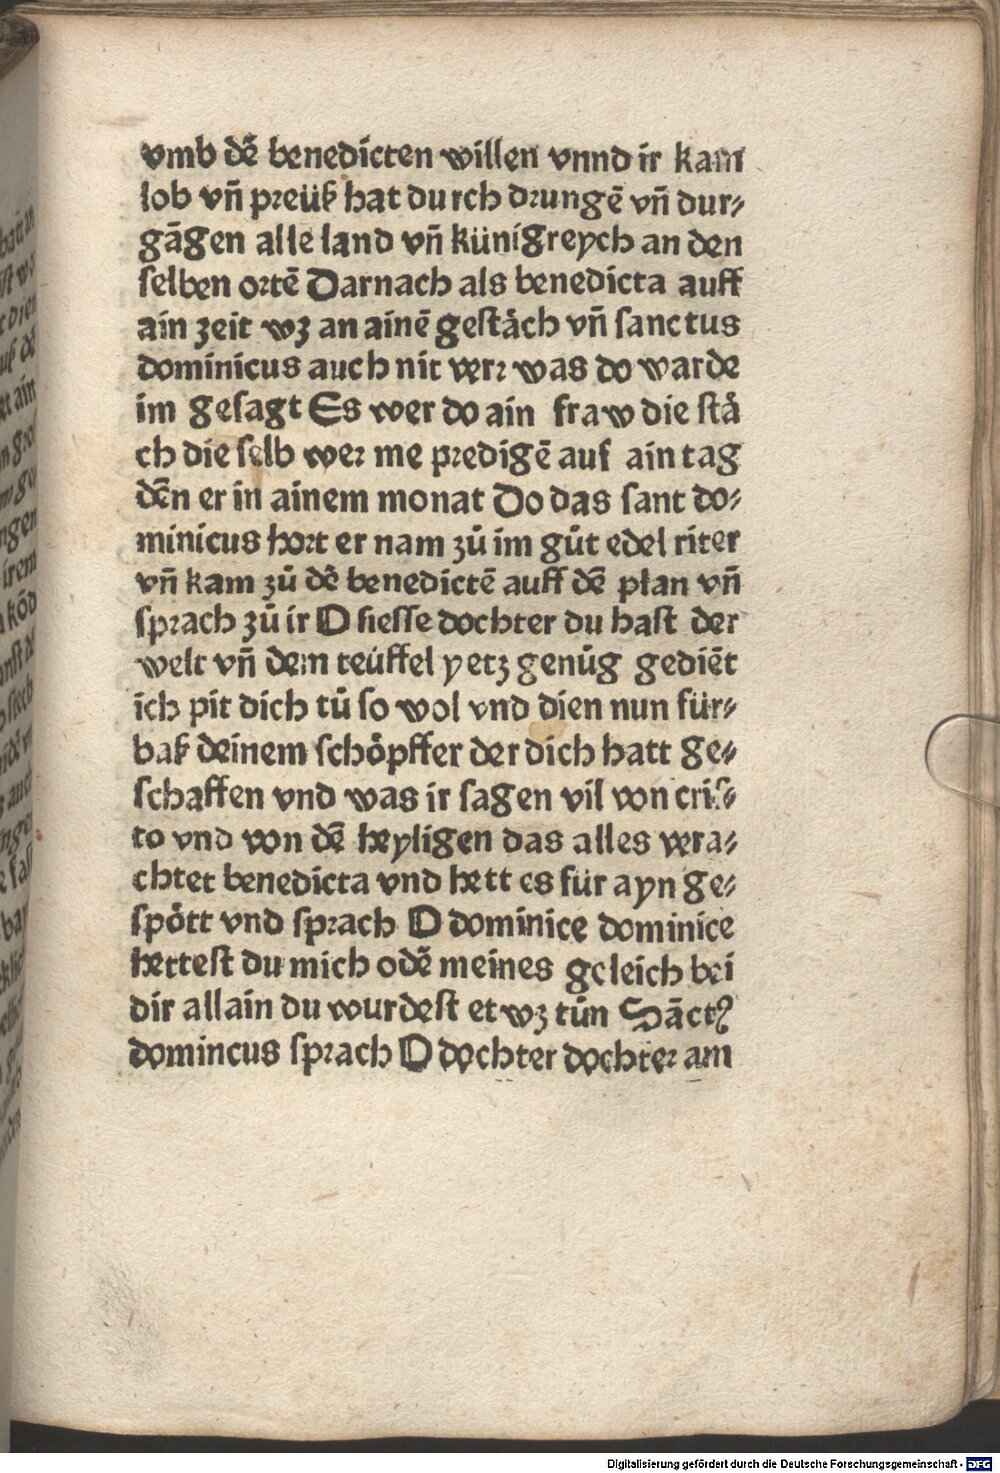 vmb dē benedicten willen vnnd ir kam
lob vñ preüß hat durch drungē vñ dur⸗
gāgen alle land vñ künigreych an den
selben ortē Darnach als benedicta auff
ain zeit wz an ainē gestäch vñ sanctus
dominicus auch nit verr was do warde
im gesagt Es wer do ain fraw die stä
ch die selb wer me predigē auf ain tag
dēn er in ainem monat Do das sant do⸗
minicus hort er nam zů im gůt edel riter
vñ kam zů dē benedictē auff dē plan vñ
sprach zů ir O siesse dochter du hast der
welt vñ dem teüffel yetz genůg gediēt
ich pit dich tů so wol vnd dien nun für⸗
baß deinem schöpffer der dich hatt ge⸗
schaffen vnd was ir sagen vil von cris⸗
to vnd von dē heyligen das alles vera⸗
chtet benedicta vnd hett es für ayn ge⸗
spött vnd sprach O dominice dominice
hettest du mich odē meines geleich bei
dir allain du wurdest etwz tůn Sāctꝰ
domincus sprach O dochter dochter am
Digitalisierung gefördert durch die Deutsche Forschungsgemeinschaft - DFG